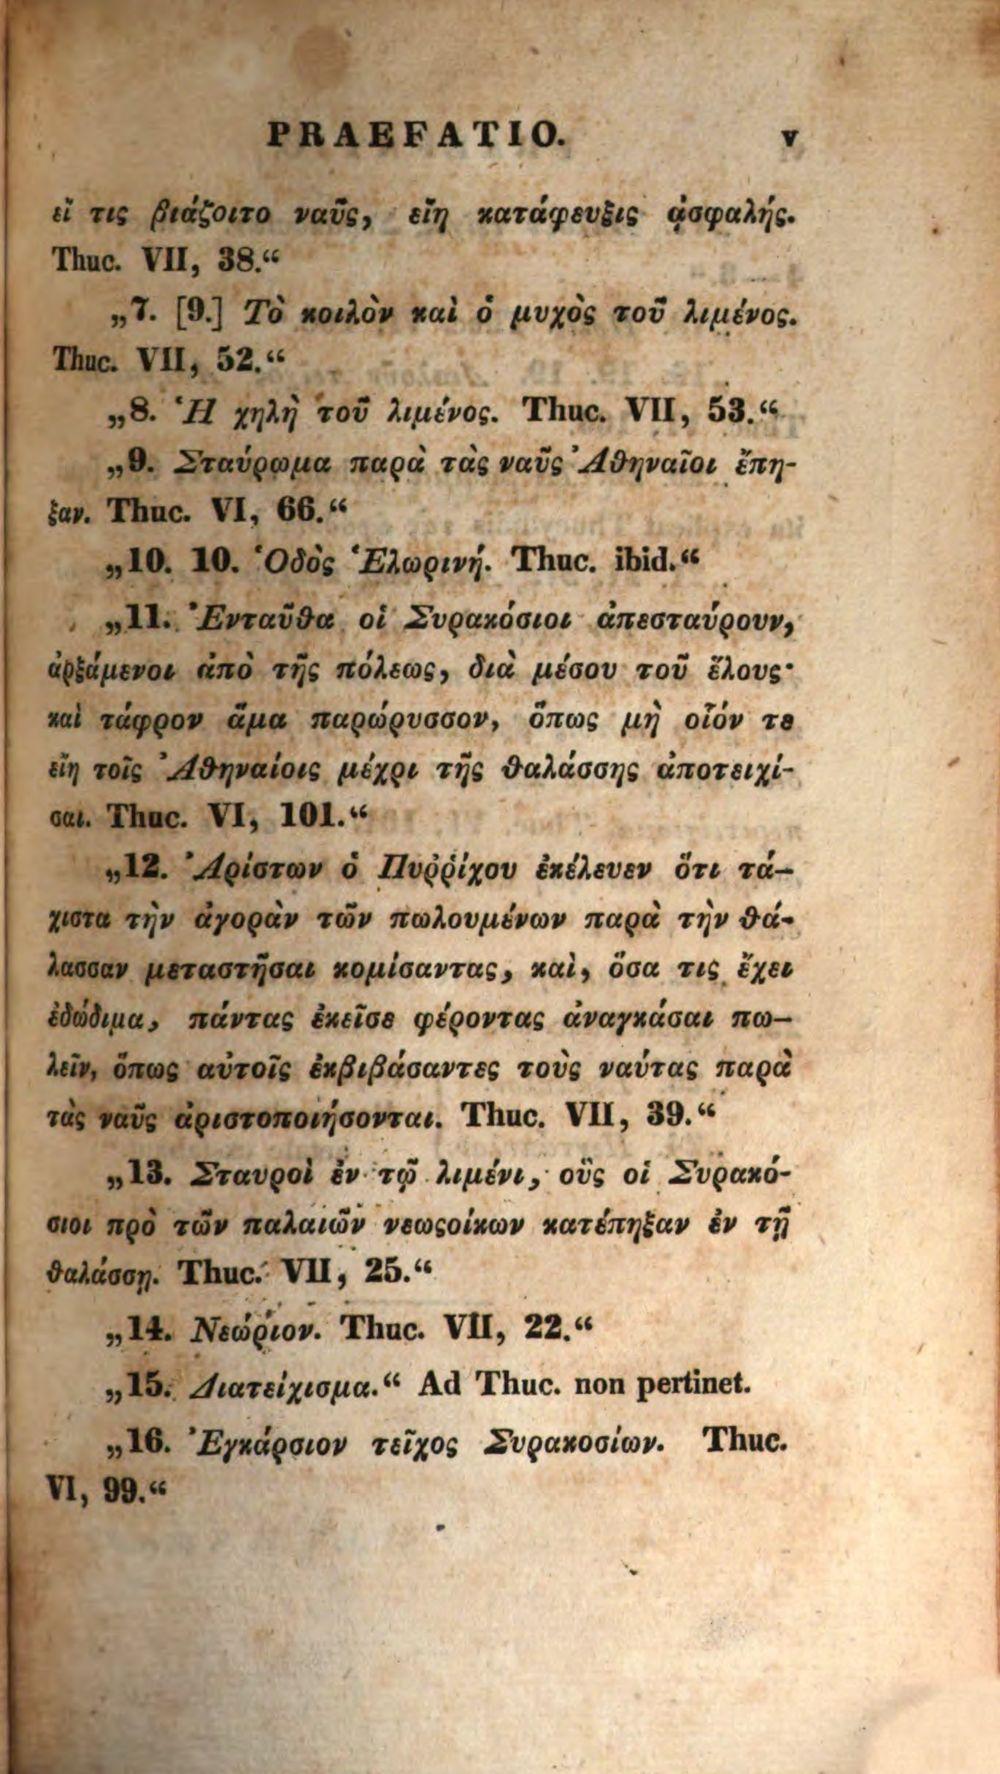 PRAEFATIO. V
εἴ τις βιάζοιτο ναῦς, εἴη κατάφευξις ἀσφαλής.
Thuc. VII, 38.“
„7. [9.] Τὸ κοιλὸν καὶ ὁ μυχὸς τοῦ λιμένος.
Thuc. VII, 52.“
„8. Ἡ χηλὴ τοῦ λιμένος. Thuc. VII, 53.“
„9. Σταύρωμα παρὰ τὰς ναῦς Ἀθηναῖοι ἔπη-
ξαν. Thuc. VI, 66.“
„10. 10. Ὁδὸς Ἑλωρινή. Thuc. ibid.“
„11. Ἐνταῦθα οἱ Συρακόσιοι ἀπεσταύρουν,
ἀρξάμενοι ἀπὸ τῆς πόλεως, διὰ μέσου τοῦ ἕλους·
καὶ τάφρον ἅμα παρώρυσσον, ὅπως μὴ οἷόν τε
εἴη τοῖς Ἀθηναίοις μέχρι τῆς θαλάσσης ἀποτειχί-
σαι. Thuc. VI, 101.“
„12. Ἀρίστων ὁ Πυῤῥίχου ἐκέλευεν ὅτι τά-
χιστα τὴν ἀγορὰν τῶν πωλουμένων παρὰ τὴν θά-
λασσαν μεταστῆσαι κομίσαντας, καὶ, ὅσα τις ἔχει
ἐδώδιμα, πάντας ἐκεῖσε φέροντας ἀναγκάσαι πω-
λεῖν, ὅπως αὐτοῖς ἐκβιβάσαντες τοὺς ναύτας παρὰ
τὰς ναῦς ἀριστοποιήσονται. Thuc. VII, 39.“
„13. Σταυροὶ ἐν τῷ λιμένι, οὓς οἱ Συρακό-
σιοι πρὸ τῶν παλαιῶν νεωςοίκων κατέπηξαν ἐν τῇ
θαλάσσῃ. Thuc. VII, 25.“
„14. Νεώριον. Thuc. VII, 22.“
„15. Διατείχισμα.“ Ad Thuc. non pertinet.
„16. Ἐγκάρσιον τεῖχος Συρακοσίων. Thuc.
VI, 99.“